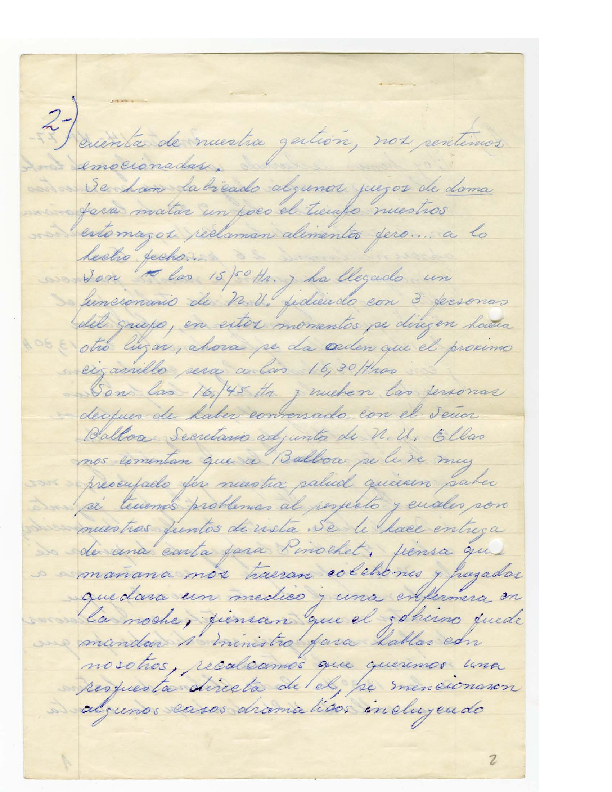 2-)
cuenta de nuestra gestión, nos sentimos
emocionadas.
Se han ubicado algunos juegos de dama
para matar un poco el tiempo nuestros
estomagos reclaman alimentos pero.... a lo
hecho pecho.
Son las 15/50 Hr. y ha llegado un
funcionario de N.U. pidiendo con 3 personas
del grupo, en estos momentos se dirigen hacia
otro lugar, ahora se da orden que el proximo
cigarrillo sera a las 16,30 Hras
Son las 16/45 Hr y vuelven las personas
despues de haber conversado con el Señor
Balboa Secretario adjunto de N.U. Ellas
nos comentan que a Balboa se le ve muy
preocupado por nuestra salud quieren saber
si tenemos problemas al respecto y cuales son
nuestros puntos de vista Se le hace entrega
de una carta para Pinochet. piensa que
mañana nos traeran colchones y frazadas
quedara un medico y una enfermera en
la noche, piensan que el gobierno puede
mandar 1 ministro para hablar con
nosotros, recalcamos que queremos una
respuesta directa de el, se mencionaron
algunos casos dramaticos incluyendo
2
1